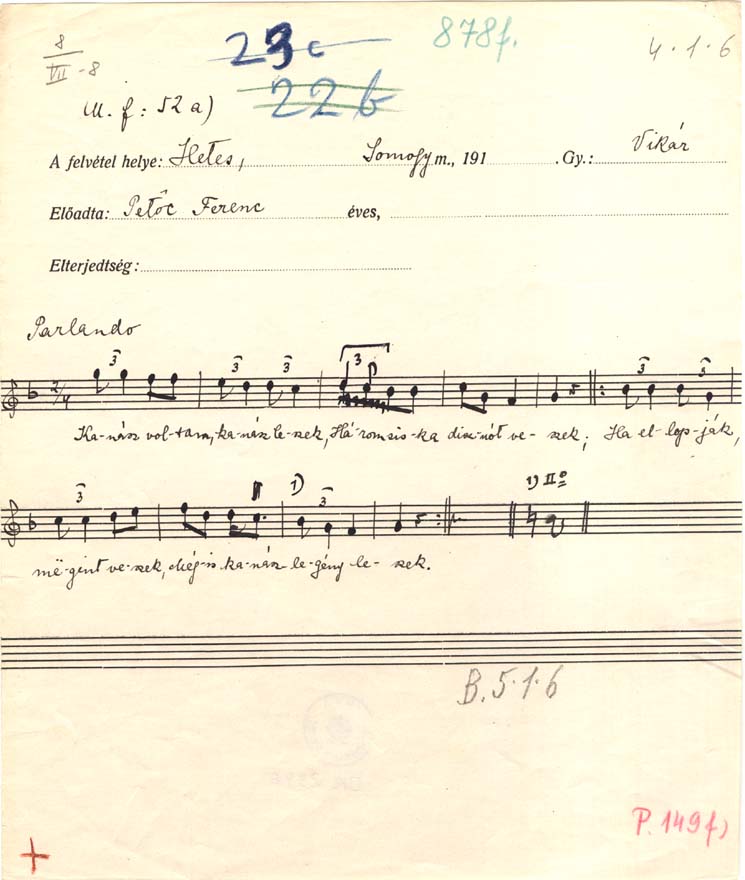 8
VII - 8
23c
22b
878f.
4.1.6
M. f: 52 a)
A felvétel helye: Hetes, Somogy m., 191 . Gy.: Vikár
Előadta: Petőc Ferenc éves,
Elterjedtség:
Parlando
3 3 3 3 3 3
2/4
Ka-nász vol-tam, ka-nász le-szek, Há-rom sis-ka disz-nót ve-szek; Ha el-lop-ják,
3 1) 3 1) II°
më-gint ve-szek, Még-is ka-nász le-gény le-szek.
B.5.1.6
P. 149f)